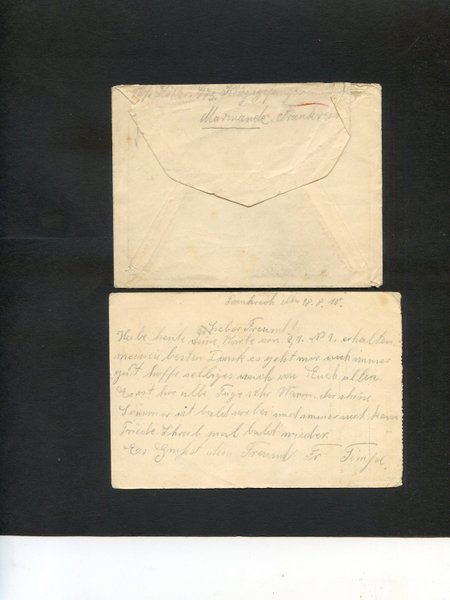 Marmande. Frankreich
Frankreich den 18.8.18.
Lieber Freund!
Habe heute deine Karte von erhalten
meinen besten Dank es geht mir noch immer
gut hoffe selbiges auch von Euch allen
Es ist hier alle Tage sehr Warm. der schöne
Sommer ist bald vorbei und immer noch kein
Friede Schreib mal bald wieder
Es Grüßt dein Freund Fr